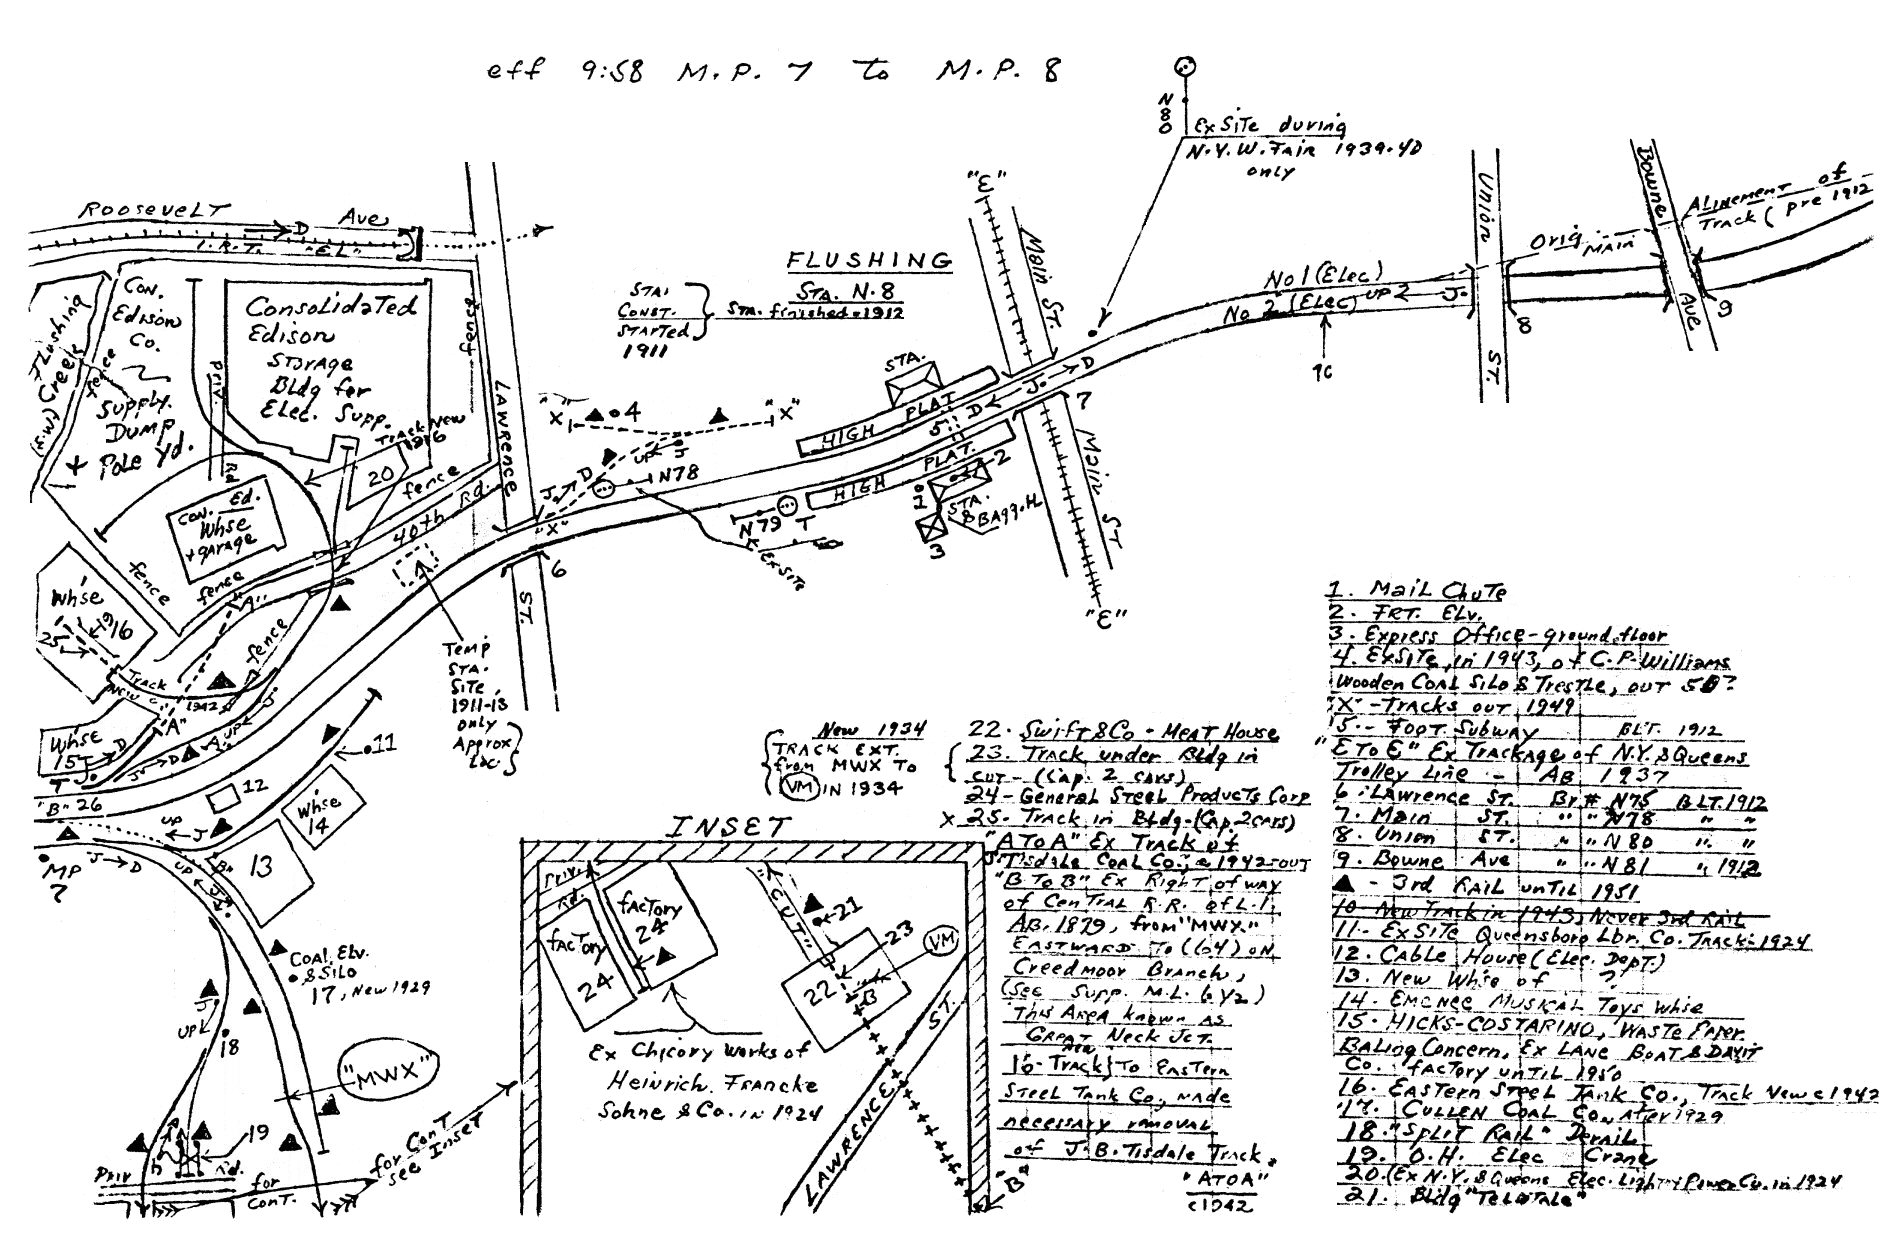 eff 9:58 M.P. 7 to M.P. 8
N80
Ex Site during
N.Y.W. Fair 1939-40
only
Roosevelt Ave
D
I.R.T. "EL"
Flushing Creek
(S.W.)
fence
Con.
Edison
Co.
Supply.
Dump
+
Pole Yd.
Priv.
Rd
Consolidated
Edison
Storage
Bldg for
Elec. Supp.
fence
Track New
1916
20
fence
40th Rd.
Con. Ed.
Whse
+ garage
fence
fence
"A"
fence
LAWRENCE
ST.
Whse
1916
25
Track
New
c. 1942
"A"
Whse
15
"B" 26
MP
7
Temp
STA.
Site,
1911-13
only
Approx
Loc
STA.
Const.
Started
1911
FLUSHING
STA. N.8
STA. finished-1912
"X" 4 "X"
UP J
J D
N78
"X"
6
N79 T
Ex Site
STA.
HIGH PLAT
5
HIGH PLAT.
1 2
STA.
& Bagg. H.
3
D J D
7
"E"
Main
ST.
Main
ST
"E"
No 1 (Elec)
No 2 (Elec) UP 2 J
10
Union
ST.
8
Bowne
Ave
9
Orig. Main
Alinement of
Track (pre 1912
11
12
Whse
14
13
"B"
UP J
J D
Coal Elv.
& Silo
17, New 1929
J
UP
18
"MWX"
19
Priv Rd.
for
cont.
for cont
see Inset
New 1934
Track Ext.
from MWX To
VM IN 1934
INSET
Priv.
Rd.
factory
24
factory
24
Ex Chicory Works of
Heinrich Francke
Sohne & Co. in 1924
"CUT"
21
22
23
VM
B
LAWRENCE ST.
"B"
22. Swift & Co - Meat House
23. Track under Bldg in
cut - (Cap. 2 cars)
24 - General Steel Products Corp
x 25. Track in Bldg-(Cap. 2 cars)
"A To A" Ex Track of
J. Tisdale Coal Co., c 1942-out
"B To B" Ex Right of way
of Central R.R. of L.I.
AB. 1879, from "MWX"
Eastward To (64) on
Creedmoor Branch,
(See Supp. M.L. 6 1/2)
This Area known as
Great Neck Jct.
16-Track New To Eastern
Steel Tank Co., made
necessary removal
of J.B. Tisdale Track
"A TO A"
c1942
1. Mail Chute
2. FRT. Elv.
3. Express Office-ground floor
4. Ex Site, in 1943, of C.P. Williams
Wooden Coal Silo & Trestle, out 50?
"X"-Tracks out 1949
5-- Foot Subway BLT. 1912
"E To E" Ex Trackage of N.Y. & Queens
Trolley Line - AB 1937
6. Lawrence St. Br # N75 BLT. 1912
7. Main ST. " " N78 " "
8. Union ST. " " N80 " "
9. Bowne Ave " " N81 " 1912
▲ - 3rd Rail until 1951
10-New Track in 1943, Never 3rd Rail
11. Ex Site Queensboro Lbr. Co. Track-1924
12. Cable House (Elec. Dept.)
13. New Whse of ?
14. Emenee Musical Toys Whse
15. Hicks-Costarino, Waste Paper
Baling Concern, Ex Lane Boat & Davit
Co. factory until 1950
16. Eastern Steel Tank Co., Track New c 1942
17. Cullen Coal Co., After 1929
18. "Split Rail" Derail
19. O.H. Elec Crane
20. (Ex N.Y. & Queens Elec. Light & Power Co. in 1924
21. Bldg "Telltale"